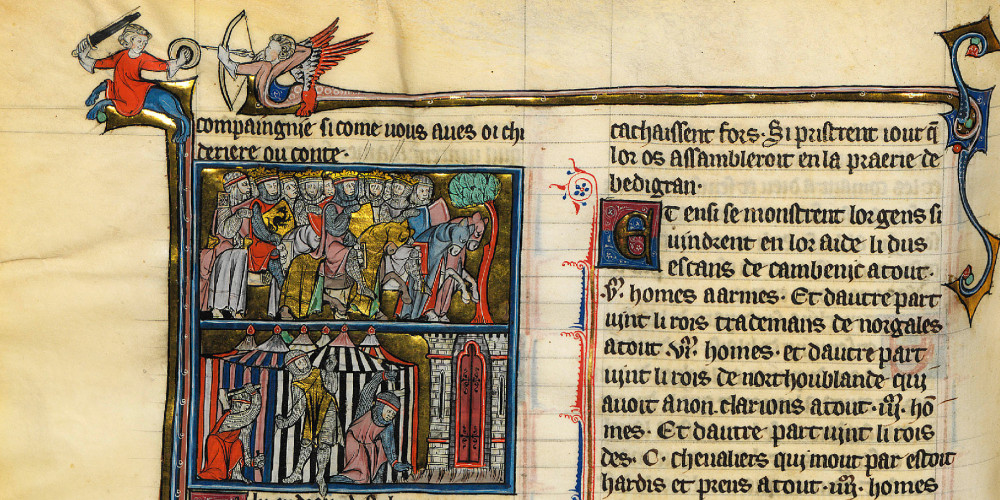 compaingnie si come uous aues oi chi
deriere ou conte.
cachaissent fors. Si pristrent iour q̄
lor os assambleroit en la praerie de
bedigran.
Et ensi se monstrent lor gens si
uindrent en lor aide li dus
escans de cambenic a tout.
homes a armes. Et dautre part
uint li rois trademans de norgales
a tout homes. et dautre part
uint li rois de northoublande qui
auoit a non. clarions a tout. hō
mes. Et dautre part uint li rois
des. C. cheualiers qui mout par estoit
hardis et preus a tout. homes